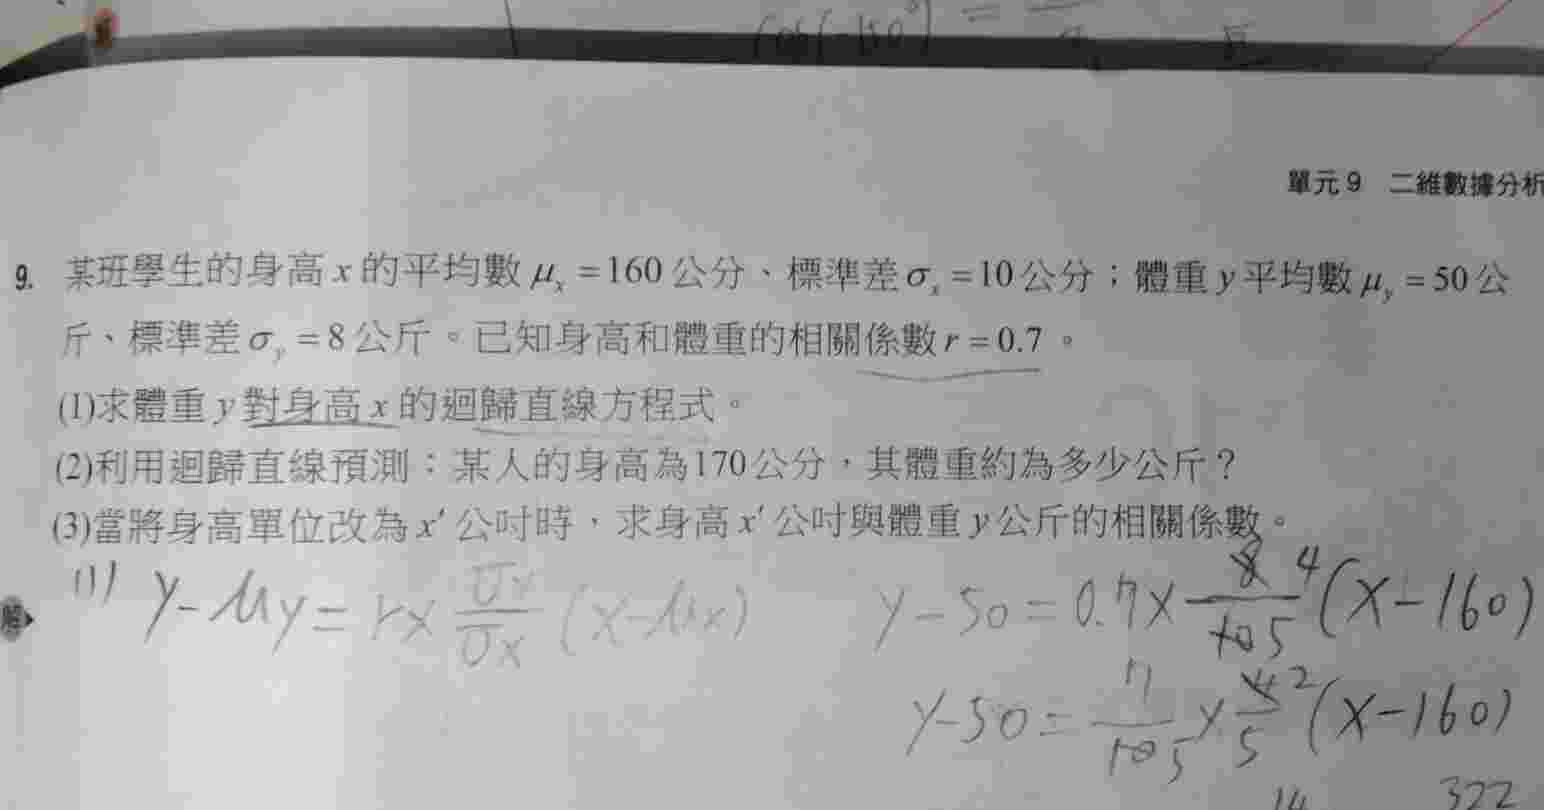 cos(-150°) =
單元 9 二維數據分析
9. 某班學生的身高 x 的平均數 μx = 160 公分、標準差 σx = 10 公分；體重 y 平均數 μy = 50 公
斤、標準差 σy = 8 公斤。已知身高和體重的相關係數 r = 0.7 。
(1)求體重 y 對身高 x 的迴歸直線方程式。
(2)利用迴歸直線預測：某人的身高為170公分，其體重約為多少公斤？
(3)當將身高單位改為 x′ 公吋時，求身高 x′ 公吋與體重 y 公斤的相關係數。
解
(1) y-μy = r× σy/σx (x-μx) y-50 = 0.7× 8 4/10 5 (x-160)
y-50 = 7/10 5 × 4 2/5 (x-160)
14 322